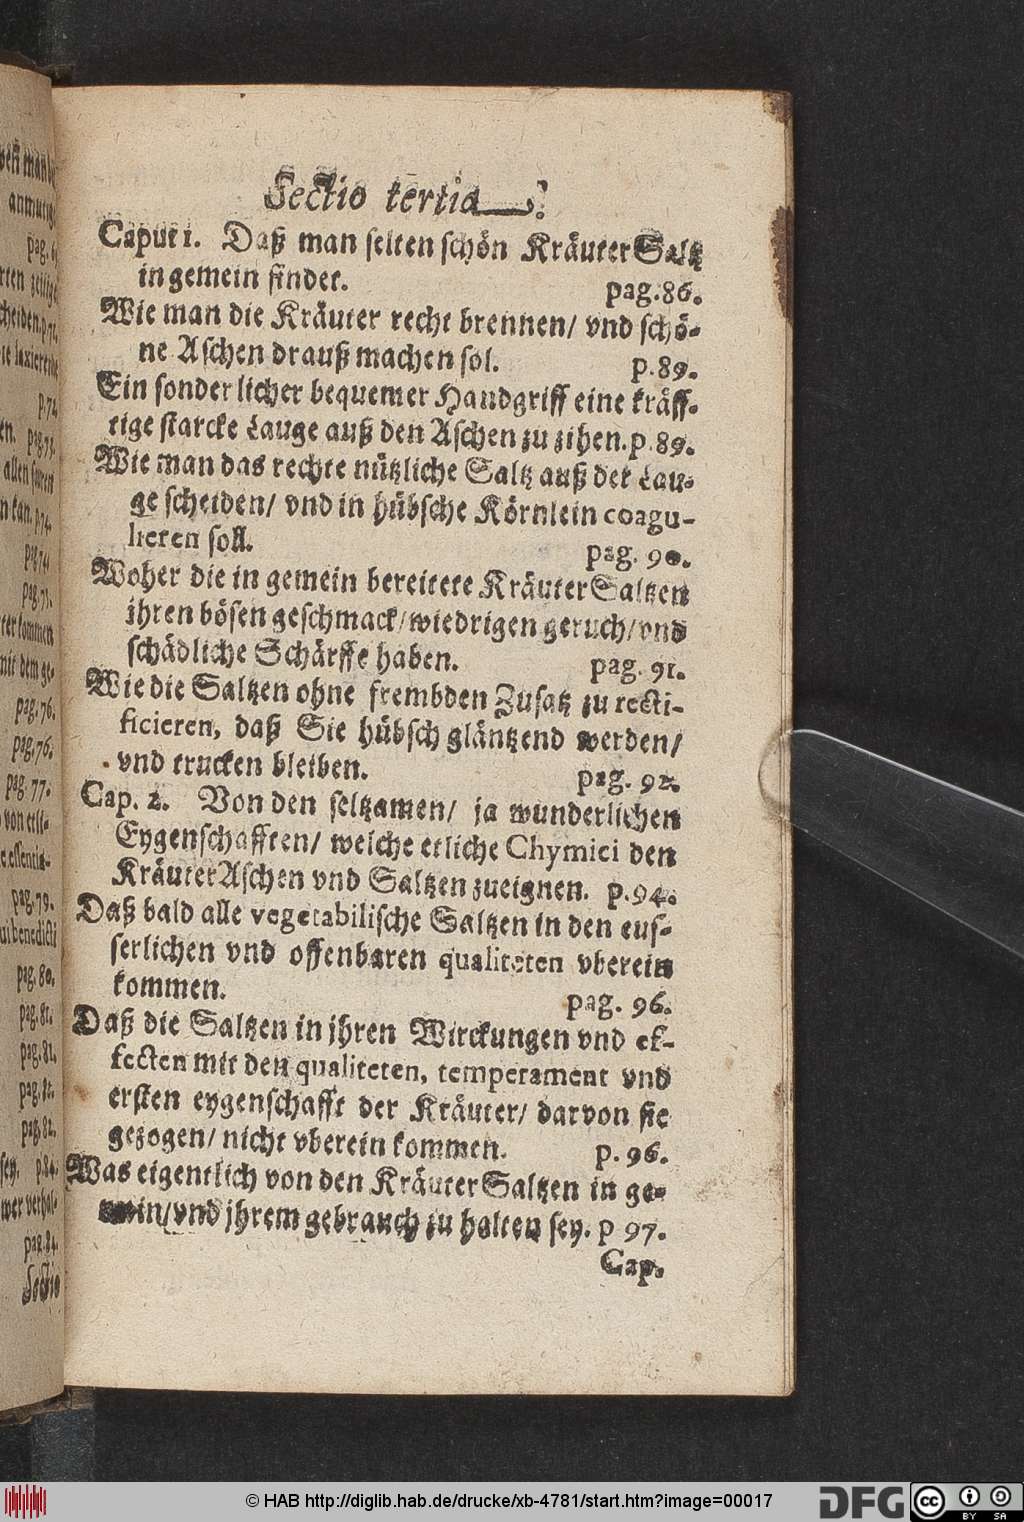 Sectio tertia.
Caput 1. Daß man selten schön Kräuter Saltz
in gemein findet. pag. 86.
Wie man die Kräuter recht brennen/ vnd schö-
ne Aschen drauß machen sol. p. 89.
Ein sonderlicher bequemer Handgriff eine kräff-
tige starcke Lauge auß den Aschen zu zihen. p. 89.
Wie man das rechte nützliche Saltz auß der Lau-
ge scheiden/ vnd in hübsche Körnlein coagu-
lieren soll. pag. 90.
Woher die in gemein bereitete Kräuter Saltzen
jhren bösen geschmack/ wiedrigen geruch/ vnd
schädliche Schärffe haben. pag. 91.
Wie die Saltzen ohne frembden Zusatz zu recti-
ficieren, daß Sie hübsch gläntzend werden/
vnd trucken bleiben. pag. 92.
Cap. 2. Von den seltzamen/ ja wunderlichen
Eygenschafften/ welche etliche Chymici den
Kräuter Aschen vnd Saltzen zueignen. p. 94.
Daß bald alle vegetabilische Saltzen in den eus-
serlichen vnd offenbaren qualiteten vberein
kommen. pag. 96.
Daß die Saltzen in jhren Wirckungen vnd ef-
fecten mit den qualiteten, temperament vnd
ersten eygenschafft der Kräuter/ darvon sie
gezogen/ nicht vberein kommen. p. 96.
Was eigentlich von den Kräuter Saltzen in ge-
mein/ vnd jhrem gebrauch zu halten sey. p 97.
Cap.
pag. 76.
pag. 76.
pag. 77.
pag. 79.
pag. 80.
pag. 81.
pag. 81.
pag. 82.
pag. 82.
sey. p. 84.
pag. 84.
Sectio
© HAB http://diglib.hab.de/drucke/xb-4781/start.htm?image=00017
DFG
cc BY SA